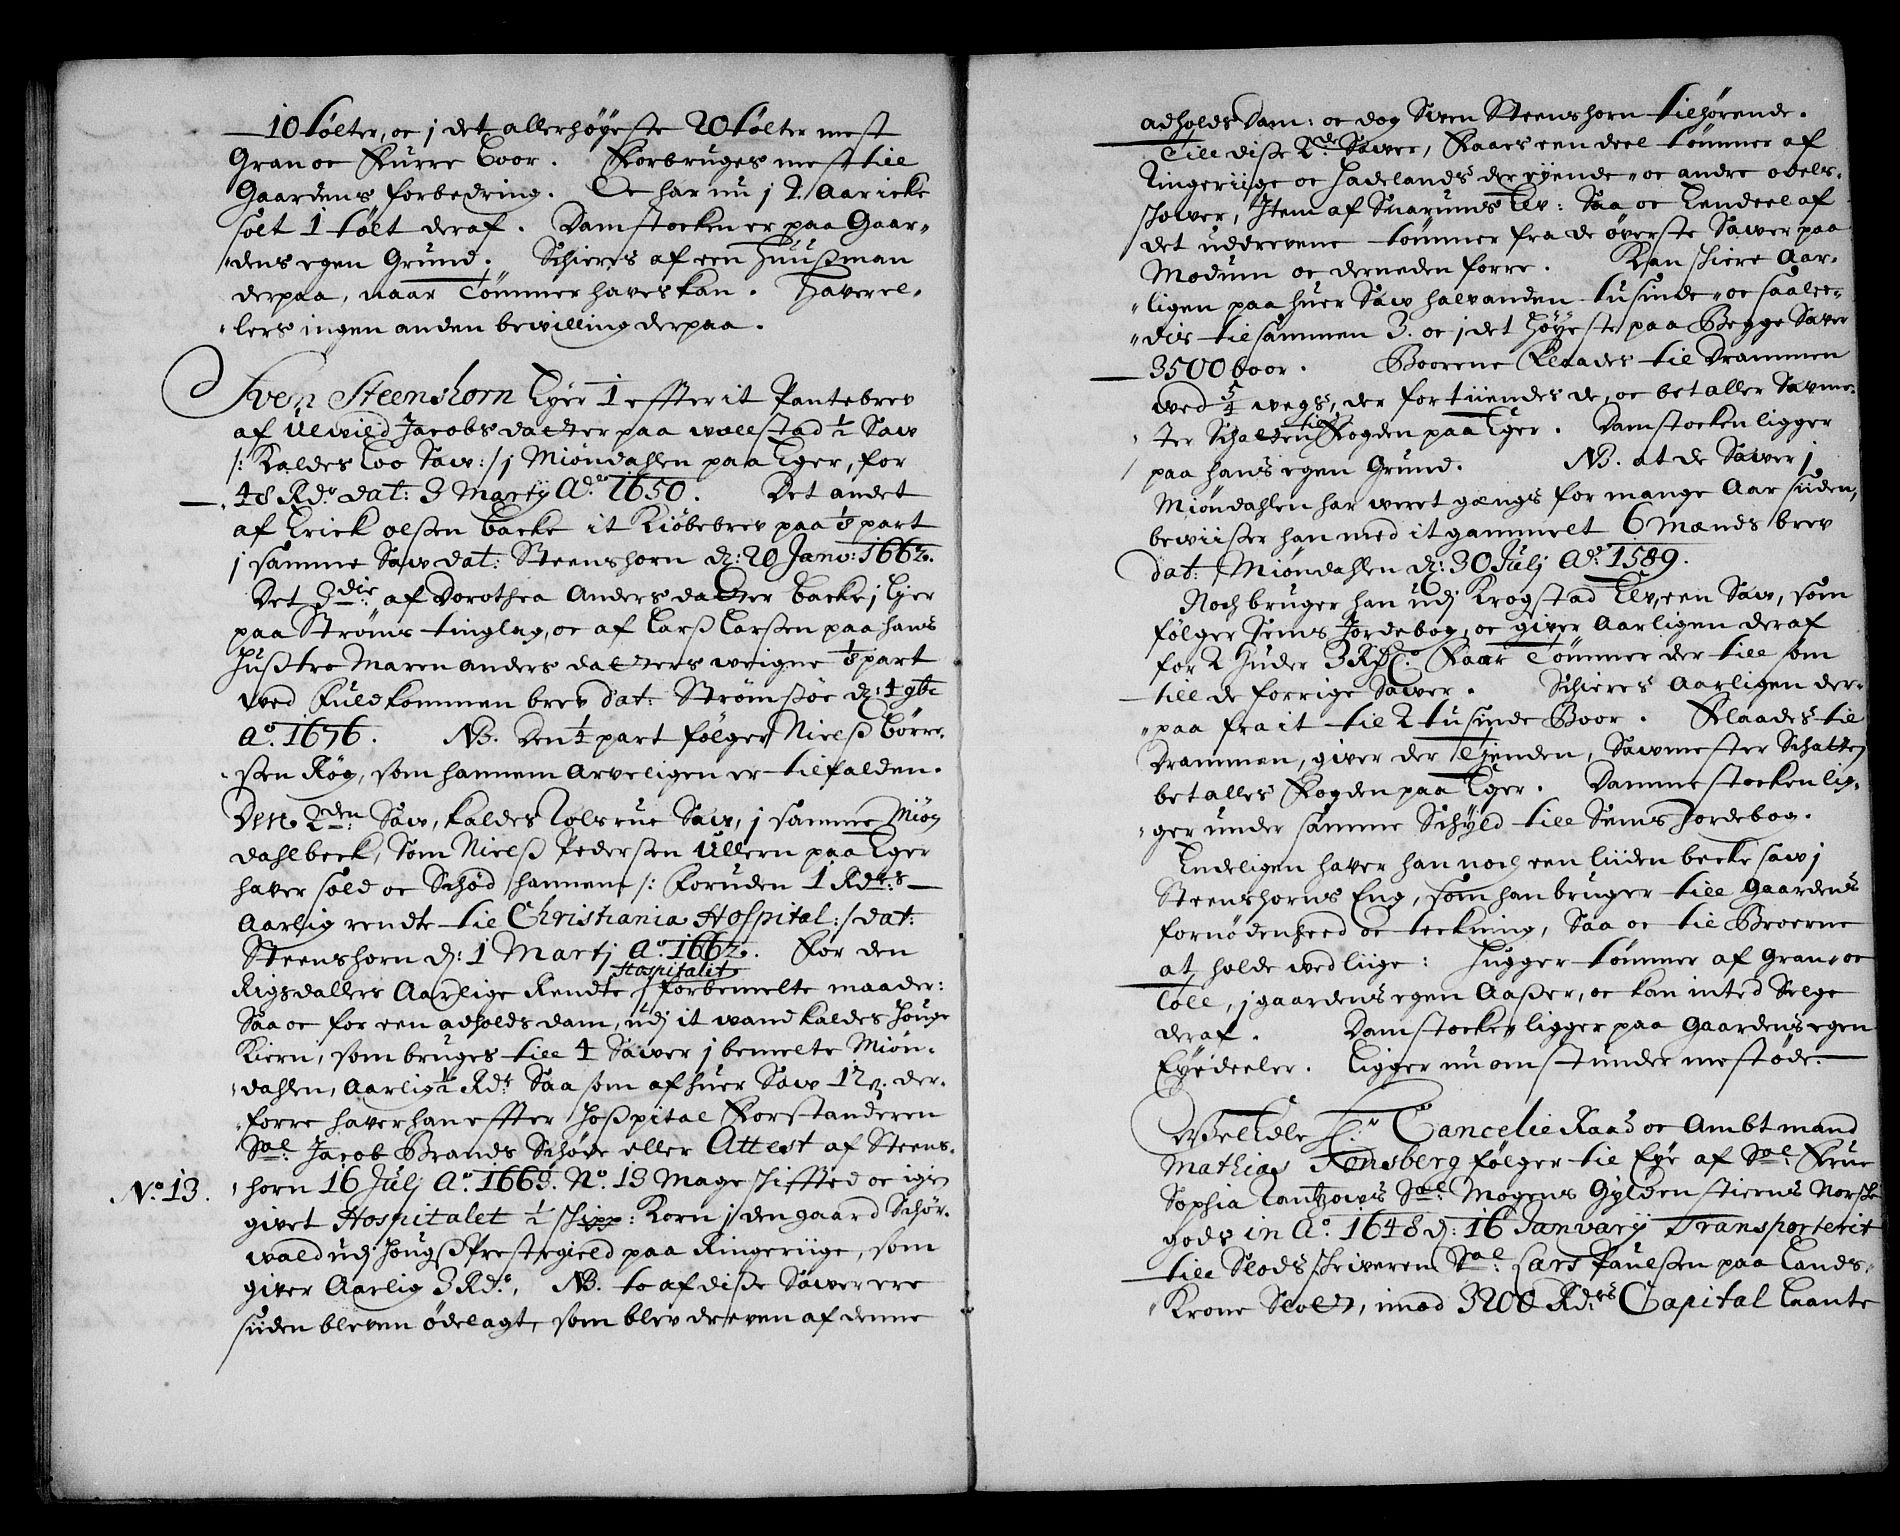 10 tölter, oc j det allerhöyeste 20 tölter mest
Gran oc Furre boor. Forbruges mest till
Gaardens forbedring. Oc har nu j 2 Aar icke
solt 1 tölt deraf. Damstocken er paa Gaar-
dens egen Grund. Schieres af een Huußman
derpaa, naar Tömmer haves kan. Haver el-
lers ingen anden bevilling derpaa.
Sven Steenshorn Eyer 1 effter it Pantebrev
af Ulvild Jacobsdatter paa ½ Saw
/: Kaldes Loo Saw :/ j Miöndahlen paa Eger, for
48 Rdr dat: 3 Martij Ao 1650. Det andet
af Erick olßen backe it Kiöbebrev paa ⅛ part
j samme Saw dat: Steenshorn d: 20 Janv: 1662.
Det 3die af Dorothea Anders datter backe j Eger
paa Ströms tinglag, oc af Larß Larßen paa hans
Hußtro Maren anders datters weigne ⅛ part
ved fuldkommen brev dat: Strömsöe d: 4 9br
Ao. 1676. NB. Den ¼ part fölger Nielß börre-
ßen Rög, som hannem Arveligen er tilfalden.
Den 2den Saw, kaldes Tolsrue Saw, j samme Miön
dahlbeck, Som Nielß Pederßen Ullern paa Eger
haver sold oc Schiöd hannem /: Foruden 1 Rdrs
Aarlig rendte til Christiania Hospital :/ dat:
Steenshorn d: 1 Martj Ao. 1662. For den
Rigsdallers Aarlige Rendte j forbemelte maader:
Hospitalit
Saa oc for een adholds dam, udj it vand kaldes Houge
Kiern, som bruges till 4 Sawer j bemelte Miön-
dahlen, Aarlig ½ Rdr Saa som af huer Saw 12 ß. der-
forre haver han effter Hoßpital Forstanderen
Sal: Jacob Brands Schiöde eller Attest af Steens-
horn 16 Julj Ao. 1668. No. 13 Mageschifftted oc igen
No. 13.
givet Hospitalet ½ schipp: Korn j den gaard Schör-
vald udj Hougs Prestegield paa Ringeriige, som
giver Aarlig 3 Rdr. NB. to af diße Sawer ere
siiden bleven ödelagt, som blev dreven af denne
adholds Dam: oc dog Sven Steenshorn tilhörende.
Till diße 2de Sawer, Faaes een deel tömmer af
Ringeriige oc Hadelands der eyende oc andre odels-
schower, Item af Snarums Elv: Saa oc Eendeel af
det uddrevene tömmer fra de överste Sawer paa
Modum oc derneden forre. Kan schiere Aar-
ligen paa huer Saw halvanden tusinde, oc saalee-
dis tilsammen 3. oc j det höyeste paa Begge Sawer
3500 boor. Boorene Flaades til Drammen
ved 5/4 vegs, der fortiiendes de, oc betaller Savme-
ster Schatten til Fogden paa Eger. Damstocken ligger
paa hans egen Grund. NB. at de Sawer j
Miöndahlen har veret gangs for mange Aar siiden,
beviißer han med it gammelt 6 Mænds brev
dat: Miöndahlen d: 30 Julj Ao. 1589.
Noch bruger han udj Krogstad Elv, een Saw, som
fölger Sems Jordebog, oc giver Aarligen deraf
for 2 Huder 3 Rdr. Faar Tömmer der till som
till de forrige Sawer. Schieres Aarligen der-
paa fra it til 2 tusinde Boor. Flaades til
Drammen, giver der Tjenden, Sawmester Schatten
betalles Fogden paa Eger. Dammestocken lig-
ger under samme Schyld till Sems Jordebog.
Endeligen haver han noch een liiden becke saw j
Steenshorns Eng, som han bruger till Gaardens
fornödenheed oc teckning, Saa oc til Broerne
at holde vedliige: Hugger tömmer af Gran oc
Toll, j gaardens egen Aaßer, oc kan inted Selge
deraf. Damstocken ligger paa Gaardens egen
Eyedeeler. Ligger nu omstunder mest öde.
Velædle Hr. Cancelie Raad oc Ambtmand
Mathias Tonsberg fölger til Eye af Sal: Frue
Sophia Lantzows Sal: Mogens Gyldenstierns Norsche
gods in Ao. 1648 d: 16 Januarij Transporterit
till Slodsschriveren Sal: Lars Paulßen paa Lands-
Krone Slott, imod 3200 Rdrs Capital Laante